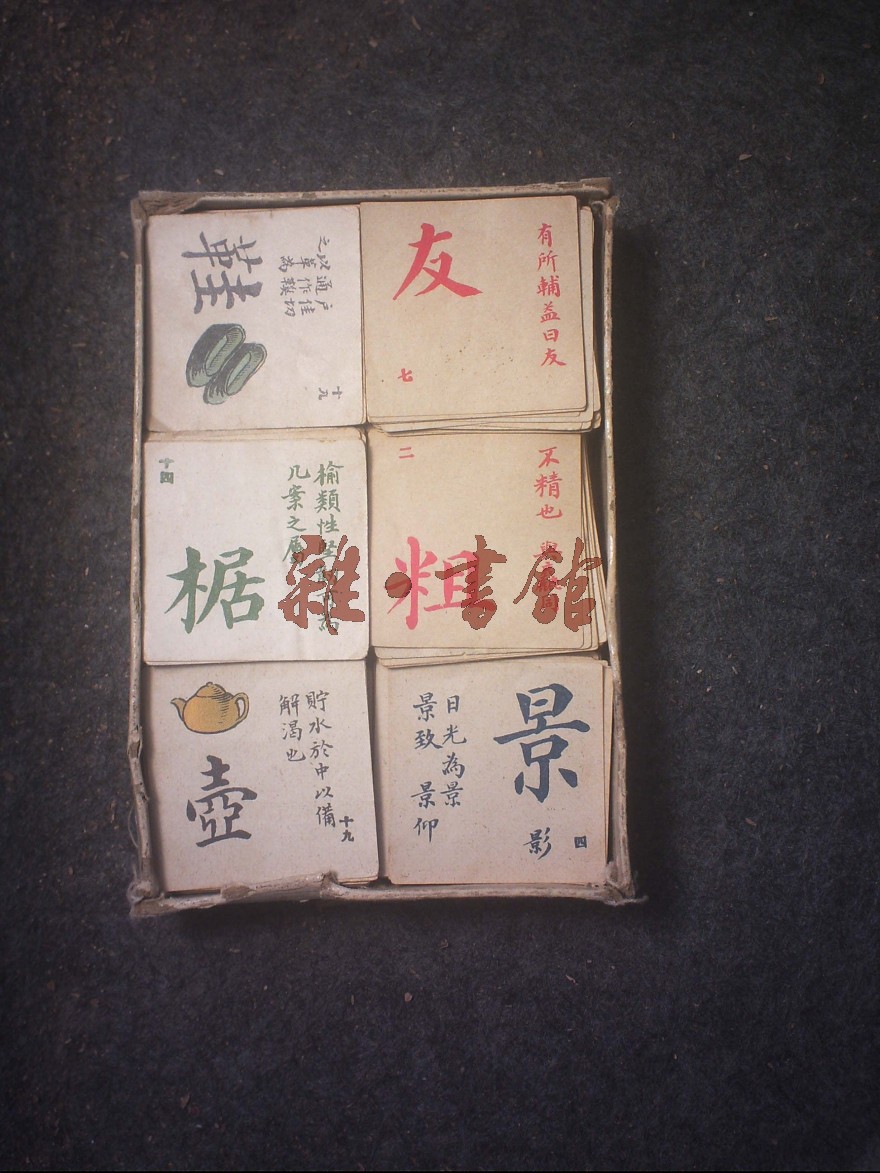 鞋
戶佳切
通作鞵
以革為
之
十九
友
有所輔益曰友
七
十四
椐
榆類性堅
几案之屬
二
粗
不精也
壺
貯水於中以備
解渴也
十九
景
日光為景
景致 景仰
影
四
雜·書館